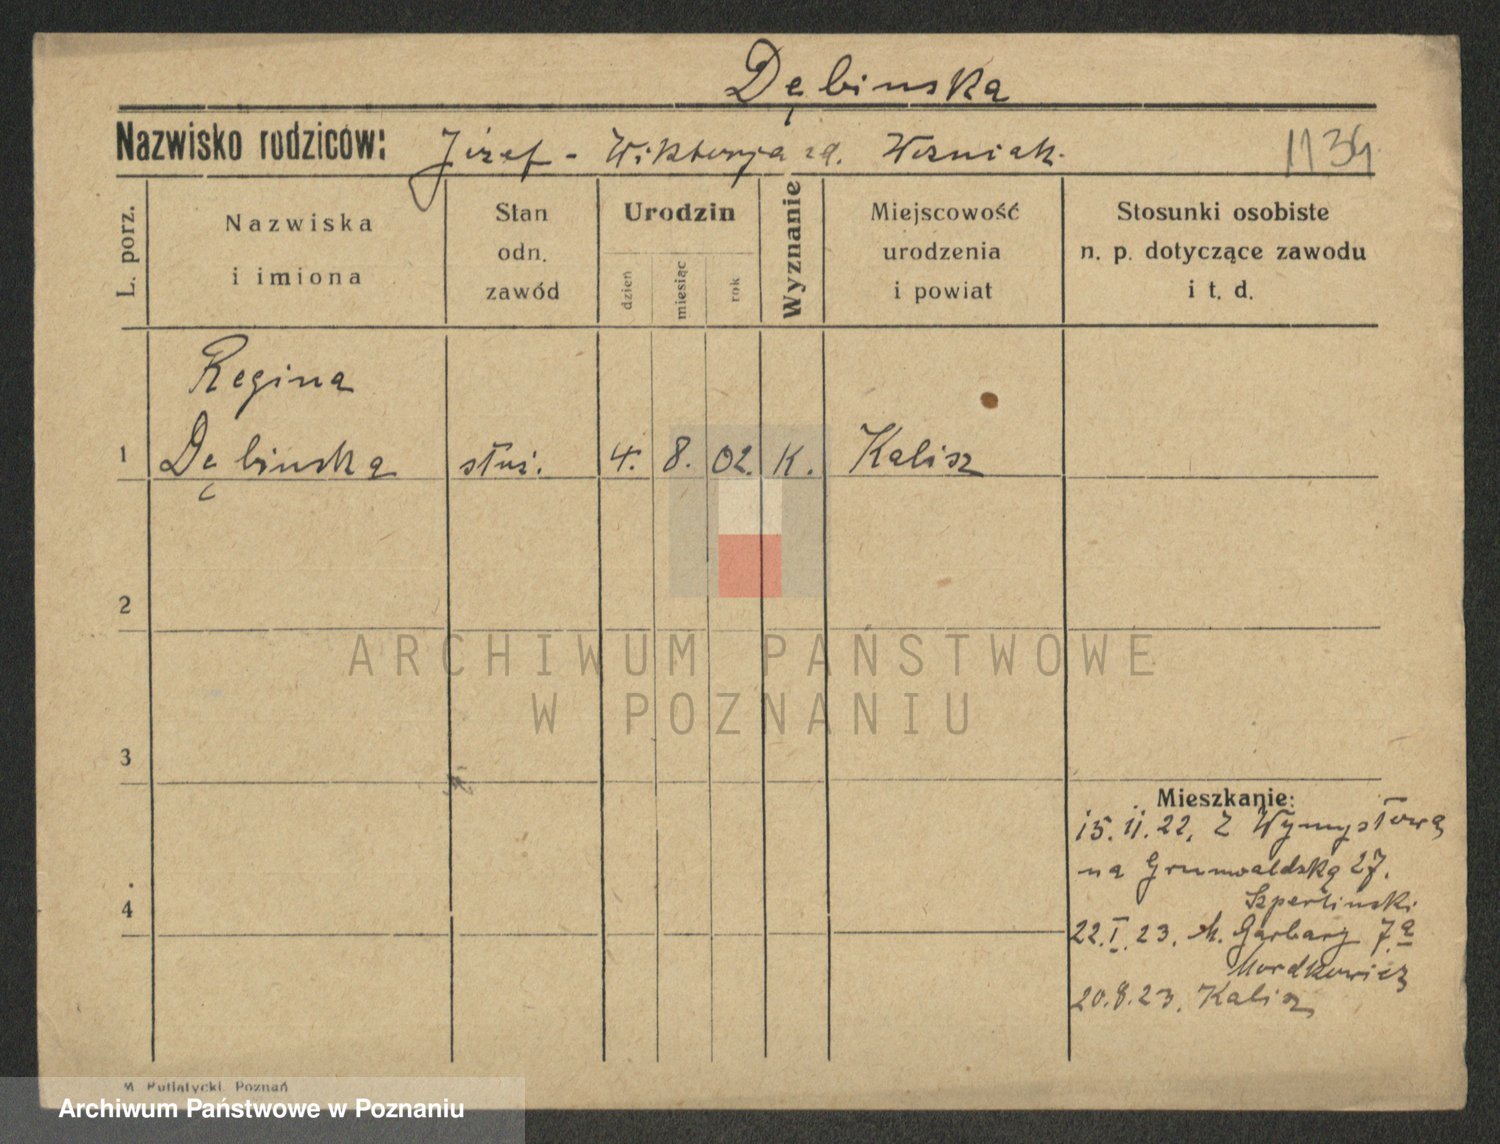 Dębinska
Nazwisko rodziców: Józef - Wiktorja zd. Wozniak.
1134
L. porz.
Nazwiska
i imiona
Stan
odn.
zawód
Urodzin
dzień
miesiąc
rok
Wyznanie
Miejscowość
urodzenia
i powiat
Stosunki osobiste
n. p. dotyczące zawodu
i t. d.
Regina
1 Dębinska służ. 4. 8. 02. K. Kalisz
2
ARCHIWUM PAŃSTWOWE
W POZNANIU
3
Mieszkanie:
15.11.22. Z Wymysłową
na Grunwaldską 27.
Szperlinski
4
22.I.23. M. Garbary 7a
Mordkowicz
20.8.23. Kalisz
M. Putiatycki, Poznań
Archiwum Państwowe w Poznaniu